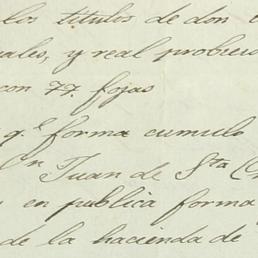 los titulos de don
uales, y real probieron
con 77. fojas
q.e forma cumulo
n Juan de Sta
en publica forma
de la hacienda de